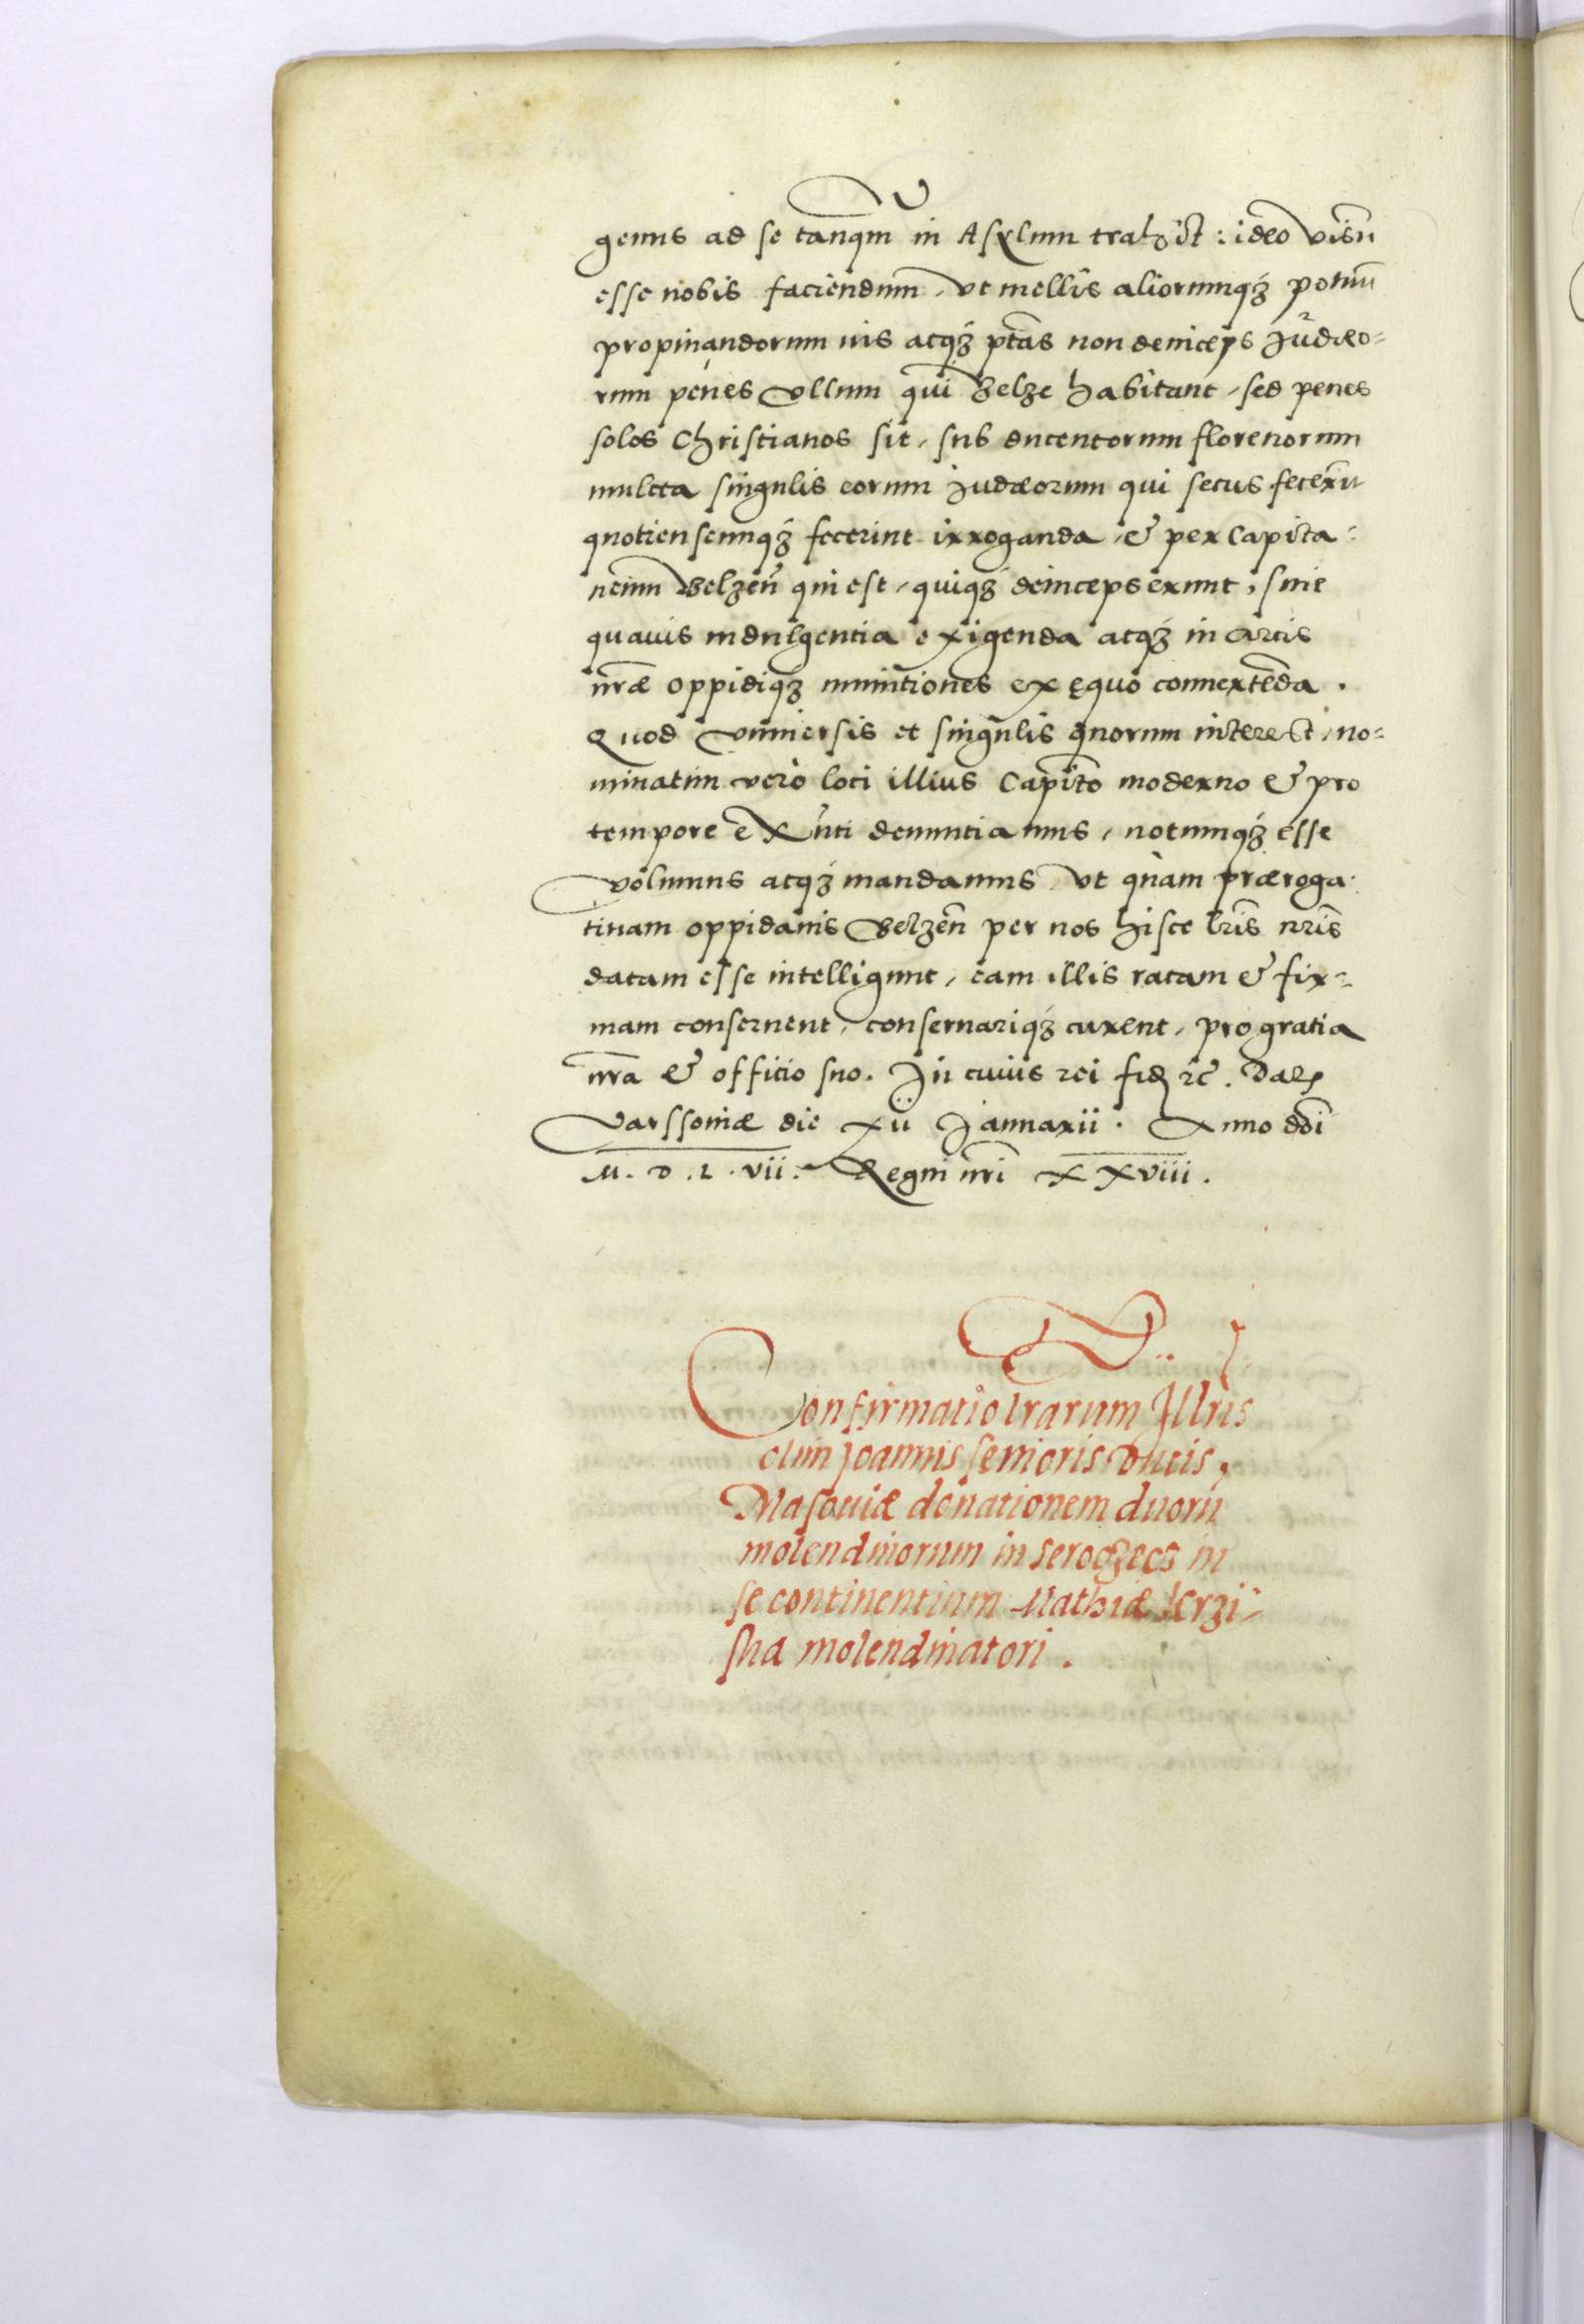 genus ad se tanq̃m in Asylum trahãt : ideo visũ
esse nobis faciendum, vt mellis aliorumq3 potuũ
propinandorum ius atq3 ptãs non deinceps Judæo=
rum penes vllum qui Belze habitant, sed penes
solos Christianos sit, sub ducentorum florenorum
mulcta singulis eorum Judæorum qui secus fecerĩt
quotienscunq3 fecerint irroganda, & per Capita=
neum Belzeñ qui est, quiq3 deinceps erunt, sine
quauis indulgentia exigenda atq3 in arcis
nr̃æ oppidiq3 munitiones ex ęquo conuertẽda.
Quod vniuersis et singulis quorum interest, no=
minatim vero loci illius Capitõ moderno & pro
tempore exñti denuntiamus, notumq3 esse
volumus atq3 mandamus, vt quam præroga=
tiuam oppidanis Belzeñ per nos hisce lr̃is nr̃is
datam esse intelligunt, eam illis ratam & fir=
mam conseruent, conseruariq3 curent, pro gratia
nr̃a & officio suo. In cuius rei fidꝫ &c̃. Datꝫ
Varssouiæ die xii Januarii. Anno dñi
M. D. L. vii. Regni nr̃i XXviii.
Confirmatio lrarum Illris
olim Joannis senioris Ducis,
Masouiæ donationem duorũ
molendinorum in Seroczecz in
se continentium Mathiæ Ierzi=
ska molendinatori.